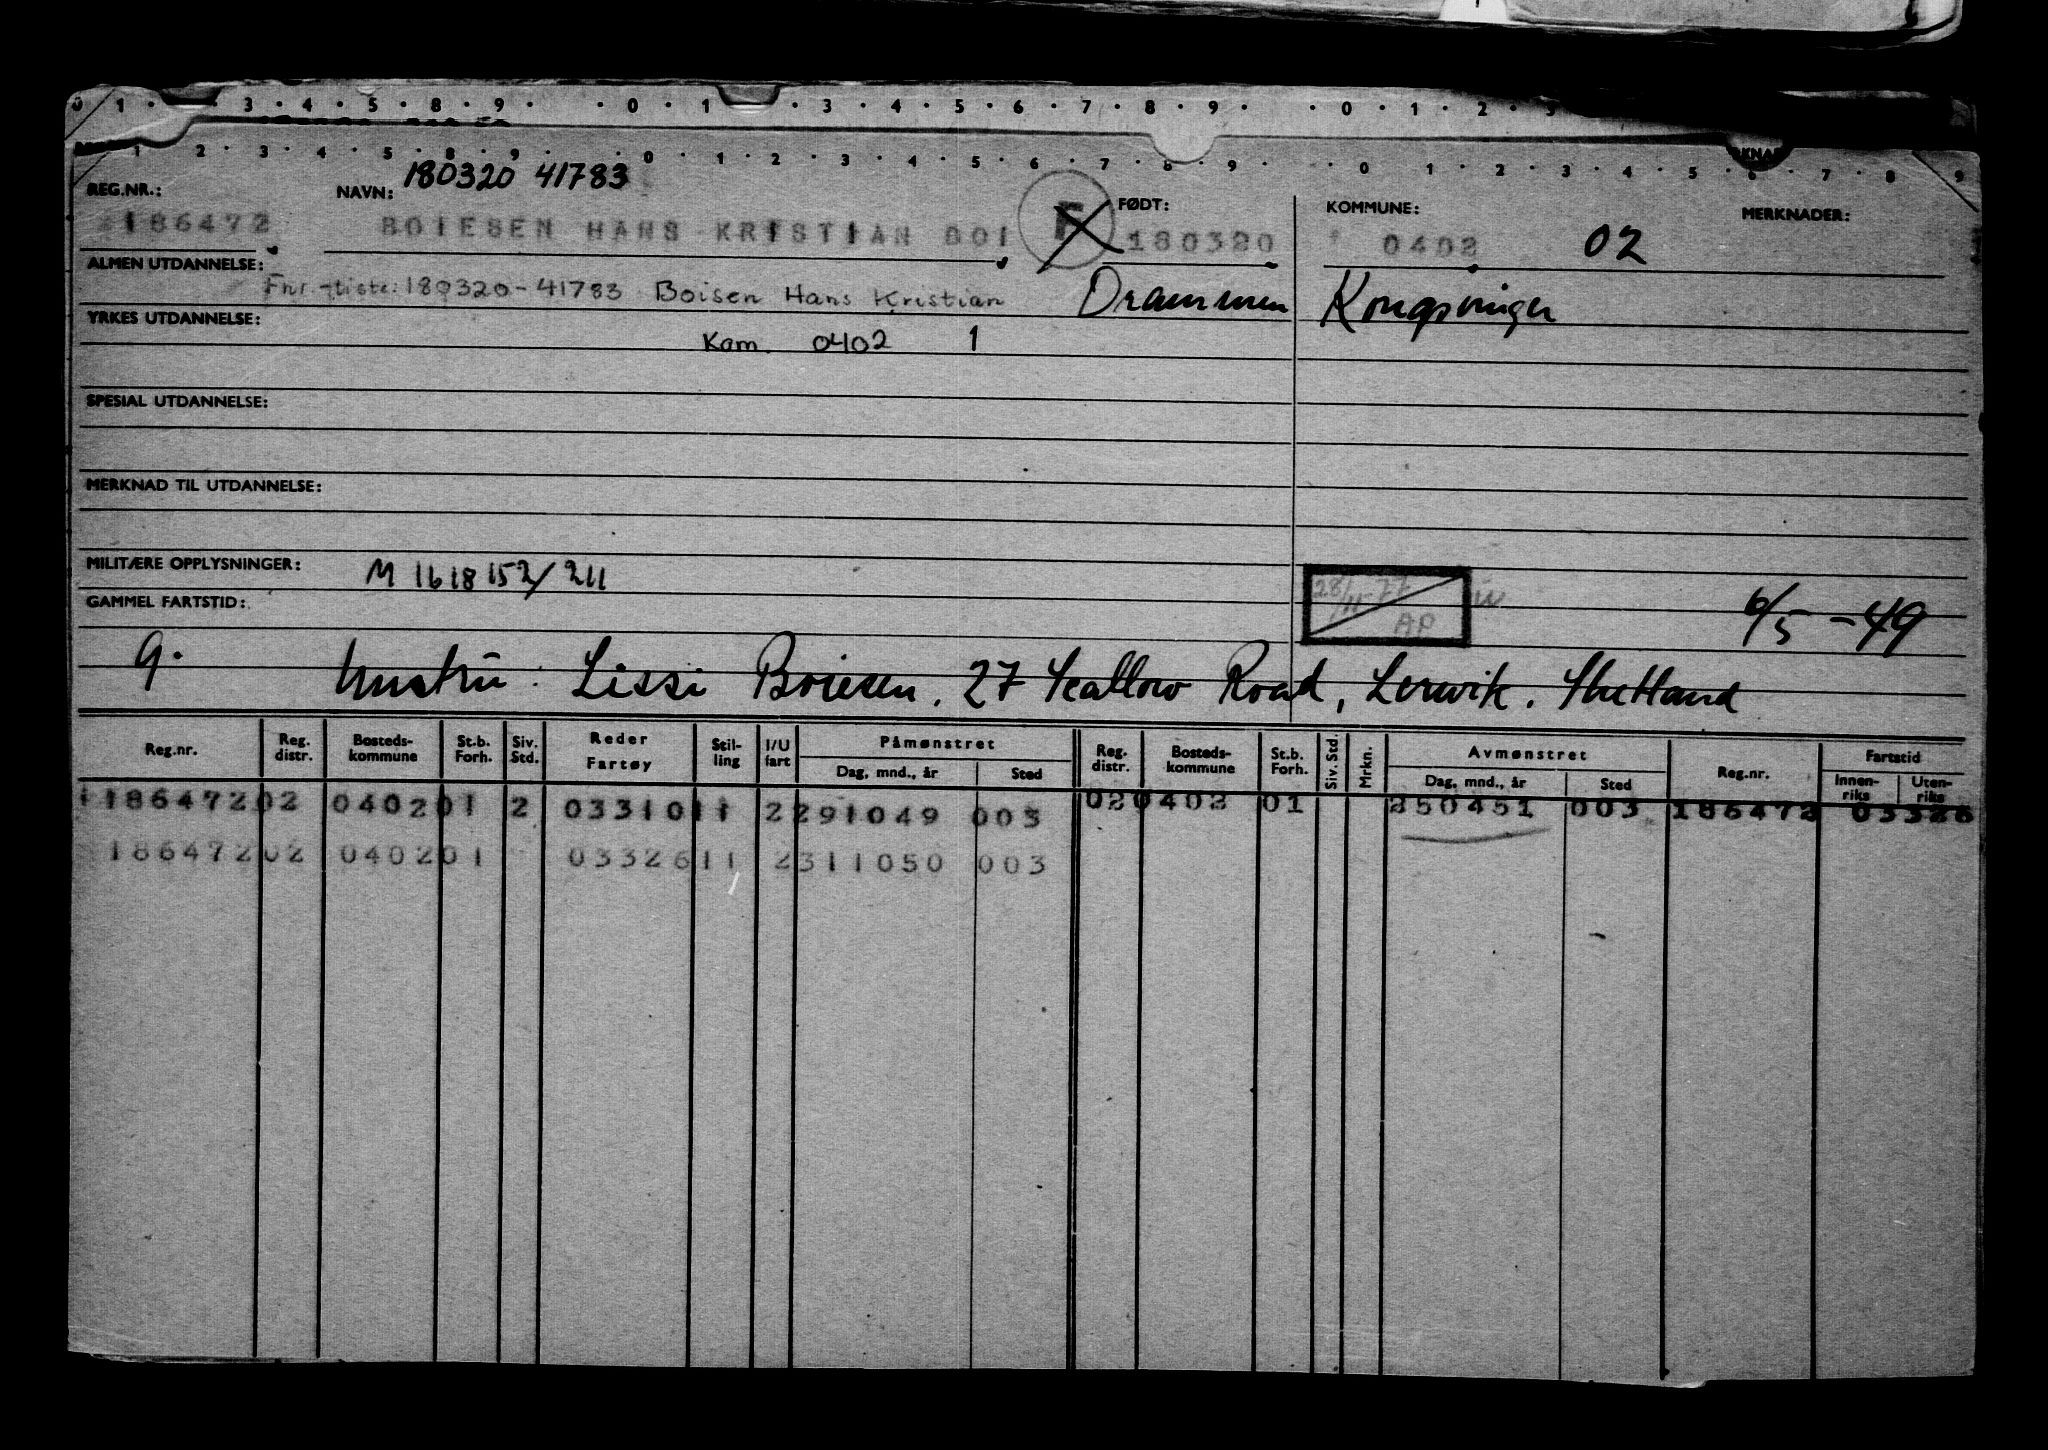 0 1 · · 3 · 4 · 5 · 8 · 9 · · 0 · 1 · 3 · 4 · 5 · 6 · 7 · 8 · 9 · · 0 · 1 · 2 · 3
1 2 · 3 · 4 · 5 · 8 · 9 · · 0 · 1 · 2 · 3 · 4 · 5 · 6 · 7 · 8 · 9 · · 0 · 1 · 2 · 3 · 4 · 5 · 6 · 7 · 8 · 9
180320 41783
REG.NR.: NAVN: FØDT: KOMMUNE: MERKNADER:
186472 BOIESEN HANS KRISTIAN BOI F 180320 0402 02
ALMEN UTDANNELSE:
Fnr.-liste: 180320-41783 Boisen Hans Kristian Drammen Kongsvinger
YRKES UTDANNELSE:
Kom. 0402 1
SPESIAL UTDANNELSE:
MERKNAD TIL UTDANNELSE:
MILITÆRE OPPLYSNINGER: M 1618152/211
28/11-77 AP
GAMMEL FARTSTID:
6/5 - 49
g. hustru: Lissi Boiesen, 27 Scallow Road, Lerwik. Shetland
Reg.nr. Reg. distr. Bosteds-kommune St.b. Forh. Siv. Std. Reder Fartøy Stil-ling I/U fart Påmønstret Dag, mnd., år Sted Reg. distr. Bosteds-kommune St.b. Forh. Siv. Std. Mrkn. Avmønstret Dag, mnd., år Sted Reg.nr. Fartstid Innen-riks Uten-riks
186472 02 0402 01 2 03310 11 2 291049 003 02 0402 01 250451 003 186472 03326
186472 02 0402 01 03326 11 2 311050 003